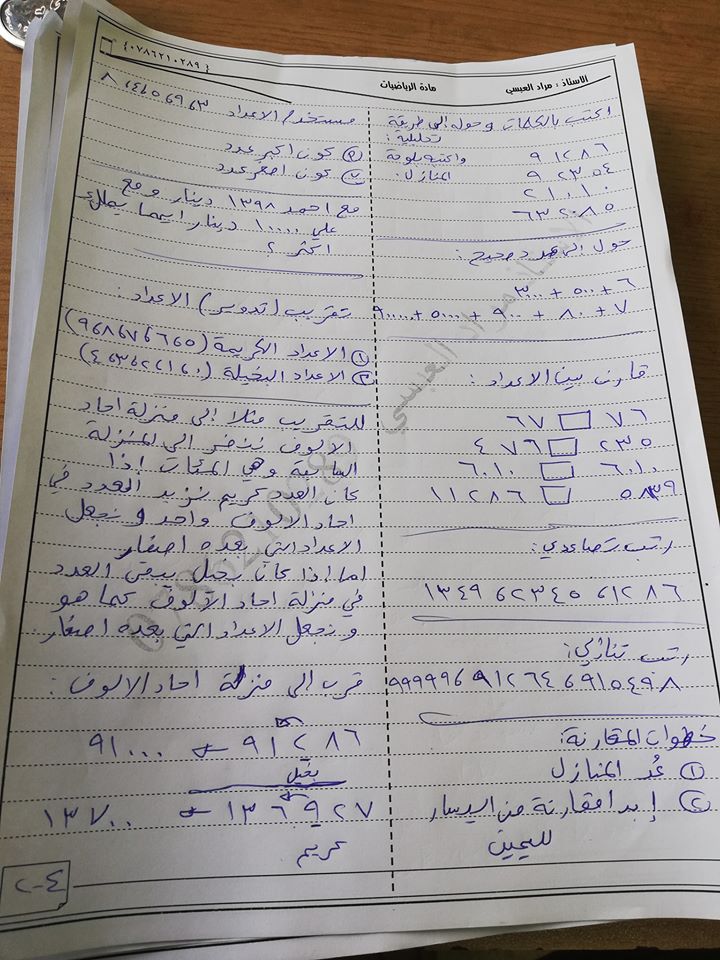 الاستاذ : مراد العبسي
مادة الرياضيات
{٠٧٨٦٢١٠٢٨٩}
اكتب بالكلمات وحول الى طريقة
تحليلية :
٩١٢٨٦ واكتبه بلوحة
٩٢٣٥٤ المنازل :
٢١٠١٠
٦٣٢٠٨٥
حول الى عدد صحيح :
٦ + ٥٠٠ + ٣٠٠٠
٧ + ٨٠ + ٩٠٠ + ٥٠٠٠ + ٩٠٠٠٠
قارن بين الاعداد :
٧٦ □ ٦٧
٢٣٥ □ ٤٧٦
٦٠١٠ □ ٦٠١٠
٥٨٣٩ □ ١١٢٨٦
رتب تصاعدي :
٦١٢٨٦ ٦٢٣٤٥ ١٣٤٩
رتب تنازلي :
٩١٥٤٩٨ ٦ ٩١٢٦٤ ٦ ٩٩٩٩٩
خطوات المقارنة :
① عُد المنازل
② إبدا مقارنة من اليسار
لليمين
مستخدم الاعداد ٣ ٦ ٩ ٦ ٥ ٦ ٤ ٦ ٨
كون اكبر عدد
كون اصغر عدد
مع احمد ١٣٩٨ دينار ومع
علي ١٠٠٠٠ دينار ايهما يملك
اكثر ؟
تقريب (تدوير) الاعداد :
① الاعداد الكريمة (٥ ٦ ٦ ٦ ٧ ٦ ٨ ٦ ٩)
② الاعداد البخيلة (٠ ٦ ١ ٦ ٢ ٦ ٣ ٦ ٤)
للتقريب مثلا الى منزلة احاد
الالوف ننضر الى المنزلة
السابقة وهي المئات اذا
كان العدد كريم نزيد العدد في
احاد الالوف واحد ونجعل
الاعداد التي بعده اصفار
اما اذا كان بخيل يبقى العدد
في منزلة احاد الالوف كما هو
ونجعل الاعداد التي بعده اصفار
قرب الى منزلة احاد الالوف :
٩١٢٨٦ ← ٩١٠٠٠
بخيل
١٣٦٩٢٧ ← ١٣٧٠٠
كريم
٢-٤